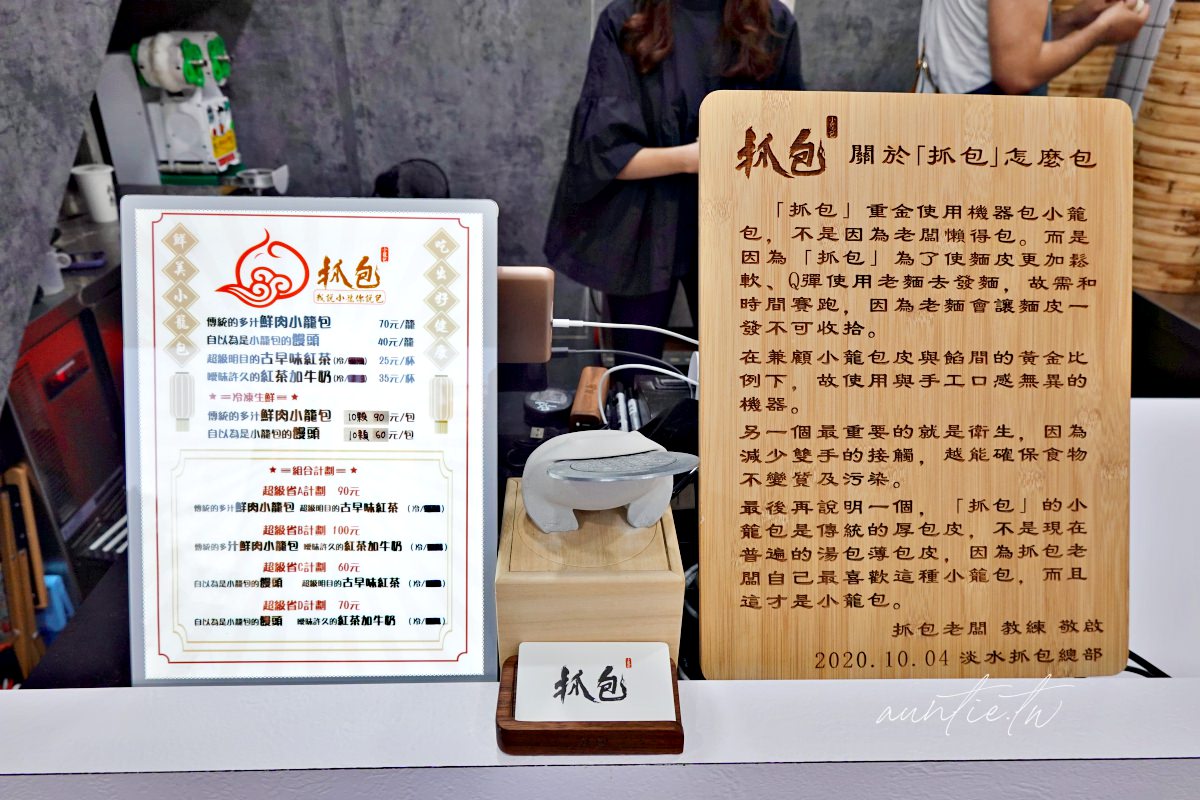 鮮美小籠包
吃出好健康
抓包
我說小籠你說包
傳統的多汁鮮肉小籠包 70元/籠
自以為是小籠包的饅頭 40元/籠
超級明目的古早味紅茶(冷/ 25元/杯
曖昧許久的紅茶加牛奶(冷/ 35元/杯
★═冷凍生鮮═★
傳統的多汁鮮肉小籠包 10顆 90元/包
自以為是小籠包的饅頭 10顆 60元/包
★═組合計劃═★
超級省A計劃 90元
傳統的多汁鮮肉小籠包 超級明目的古早味紅茶 (冷/
超級省B計劃 100元
傳統的多汁鮮肉小籠包 曖昧許久的紅茶加牛奶 (冷/
超級省C計劃 60元
自以為是小籠包的饅頭 超級明目的古早味紅茶 (冷/
超級省D計劃 70元
自以為是小籠包的饅頭 曖昧許久的紅茶加牛奶 (冷/
抓包
抓包 關於「抓包」怎麼包
「抓包」重金使用機器包小籠
包，不是因為老闆懶得包。而是
因為「抓包」為了使麵皮更加鬆
軟、Q彈使用老麵去發麵，故需和
時間賽跑，因為老麵會讓麵皮一
發不可收拾。
在兼顧小籠包皮與餡間的黃金比
例下，故使用與手工口感無異的
機器。
另一個最重要的就是衛生，因為
減少雙手的接觸，越能確保食物
不變質及污染。
最後再說明一個，「抓包」的小
籠包是傳統的厚包皮，不是現在
普遍的湯包薄包皮，因為抓包老
闆自己最喜歡這種小籠包，而且
這才是小籠包。
抓包老闆 教練 敬啟
2020.10.04 淡水抓包總部
auntie.tw